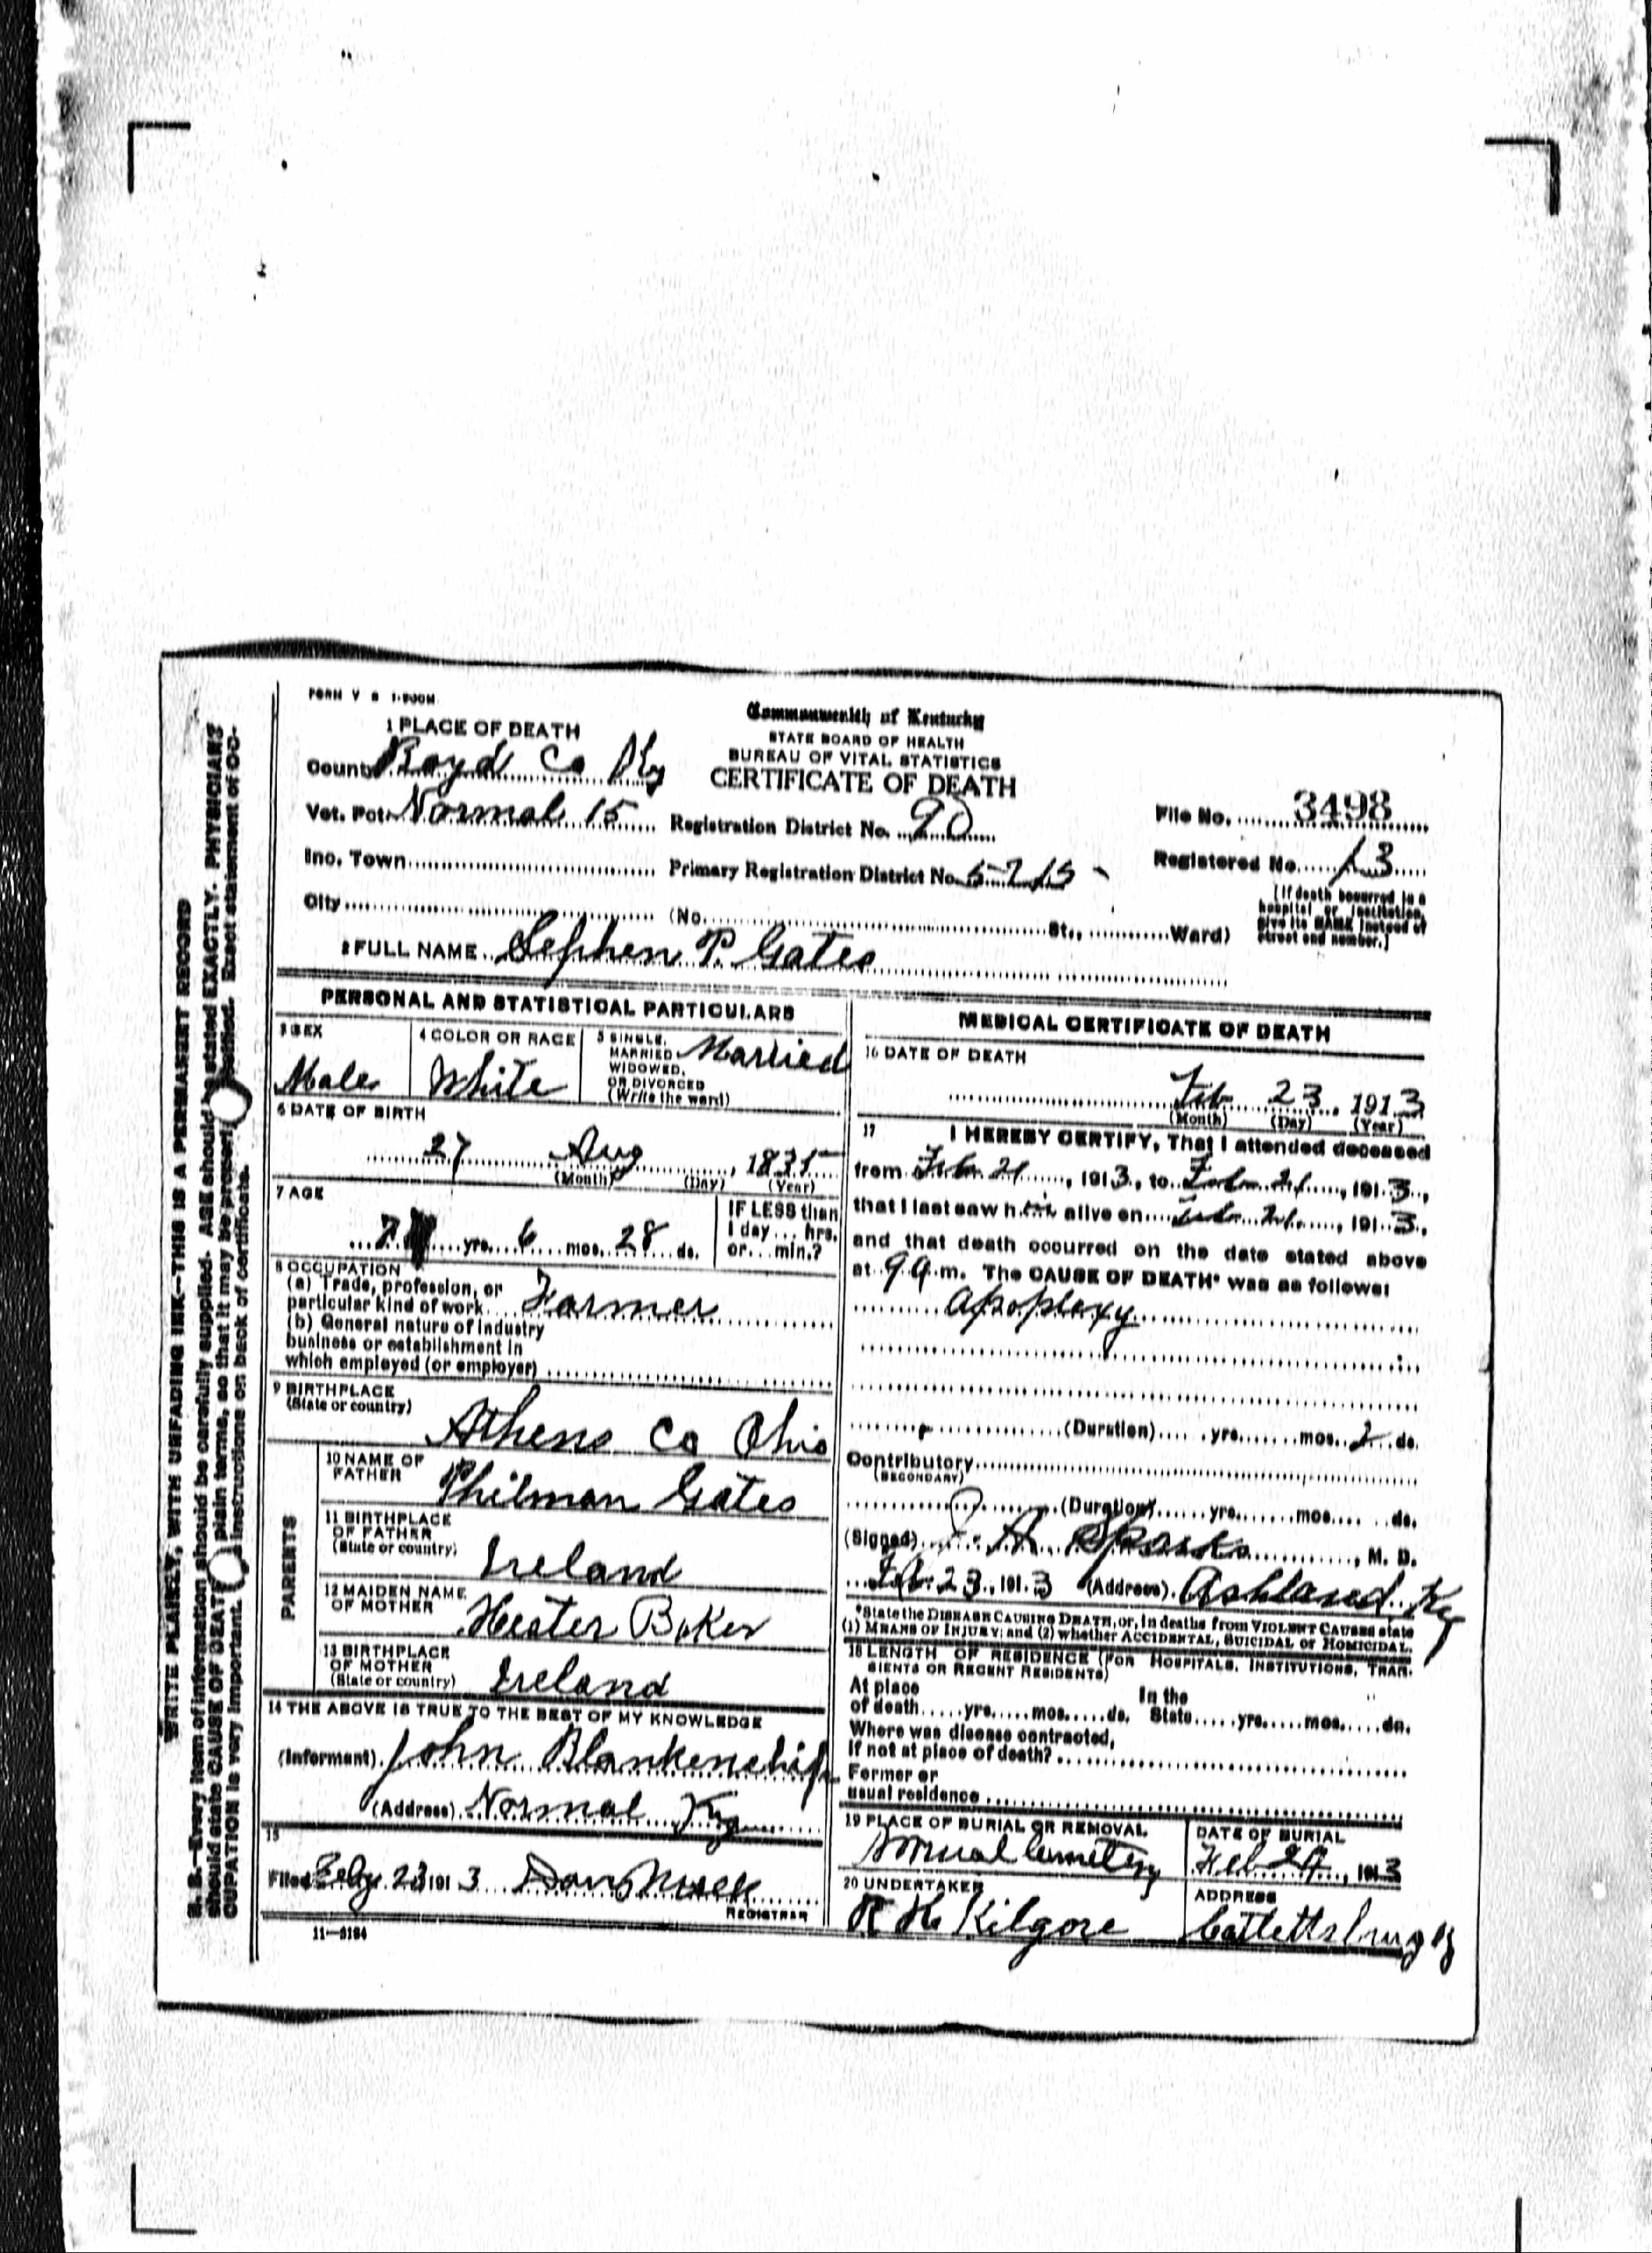 FORM V S 1-500M
Commonwealth of Kentucky
STATE BOARD OF HEALTH
BUREAU OF VITAL STATISTICS
CERTIFICATE OF DEATH
1 PLACE OF DEATH
County Boyd Co Ky
Vot. Pct. Normal 15 Registration District No. 90 File No. 3498
Inc. Town Primary Registration District No. 5715 Registered No. 13
City (No. St., Ward)
(If death occurred in a
hospital or institution,
give its NAME instead of
street and number.)
2 FULL NAME Stephen P. Gates
PERSONAL AND STATISTICAL PARTICULARS
3 SEX
Male
4 COLOR OR RACE
White
5 SINGLE,
MARRIED
WIDOWED,
OR DIVORCED
(Write the word)
Married
6 DATE OF BIRTH
27 Aug, 1835
(Month) (Day) (Year)
7 AGE
yrs. 6 mos. 28 ds.
IF LESS than
1 day... hrs.
or... min.?
8 OCCUPATION
(a) Trade, profession, or
particular kind of work Farmer
(b) General nature of industry
business or establishment in
which employed (or employer)
9 BIRTHPLACE
(State or country)
Athens Co Ohio
PARENTS
10 NAME OF
FATHER
Philmon Gates
11 BIRTHPLACE
OF FATHER
(State or country)
Ireland
12 MAIDEN NAME
OF MOTHER
Hester Baker
13 BIRTHPLACE
OF MOTHER
(State or country)
Ireland
14 THE ABOVE IS TRUE TO THE BEST OF MY KNOWLEDGE
(Informant) John Blankenship
(Address) Normal Ky
15
Filed Feby 23 1913
REGISTRAR
11—3184
MEDICAL CERTIFICATE OF DEATH
16 DATE OF DEATH
Feb 23, 1913
(Month) (Day) (Year)
17 I HEREBY CERTIFY, That I attended deceased
from Feb 21, 1913, to Feb 21, 1913,
that I last saw him alive on Feb 21, 1913,
and that death occurred on the date stated above
at 9 a.m. The CAUSE OF DEATH* was as follows:
Apoplexy
(Duration) yrs. mos. 2 ds.
Contributory
(SECONDARY)
(Duration) yrs. mos. ds.
(Signed) J. A. Sparks, M. D.
Feb. 23, 1913 (Address) Ashland Ky
*State the DISEASE CAUSING DEATH, or, in deaths from VIOLENT CAUSES state
(1) MEANS OF INJURY; and (2) whether ACCIDENTAL, SUICIDAL or HOMICIDAL.
18 LENGTH OF RESIDENCE (FOR HOSPITALS, INSTITUTIONS, TRAN-
SIENTS OR RECENT RESIDENTS)
At place
of death yrs. mos. ds.
In the
State yrs. mos. ds.
Where was disease contracted,
If not at place of death?
Former or
usual residence
19 PLACE OF BURIAL OR REMOVAL
Normal Cemetery
DATE OF BURIAL
Feb 24, 1913
20 UNDERTAKER
R H Kilgore
ADDRESS
Catlettsburg Ky
WRITE PLAINLY, WITH UNFADING INK—THIS IS A PERMANENT RECORD
N. B.—Every item of information should be carefully supplied. AGE should be stated EXACTLY. PHYSICIANS
should state CAUSE OF DEATH in plain terms, so that it may be properly classified. Exact statement of OC-
CUPATION is very important. See instructions on back of certificate.